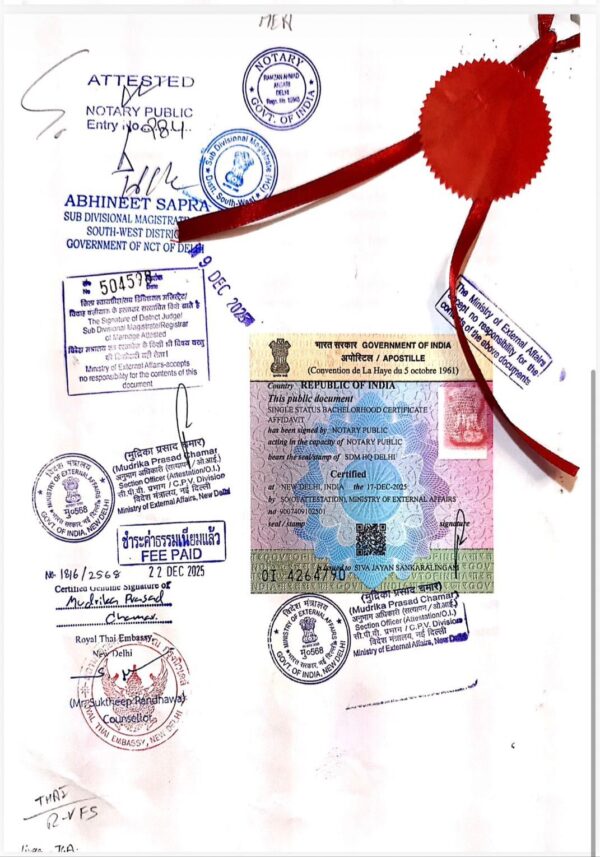 MEA
ATTESTED
NOTARY PUBLIC
Entry No 984
NOTARY
RAMZAN AHMAD
ANSARI
DELHI
GOVT. OF INDIA
Sub Divisional Magistrate
Distt. South-West
ABHINEET SAPRA
SUB DIVISIONAL MAGISTRATE
SOUTH-WEST DISTRICT
GOVERNMENT OF NCT OF DELHI
9 DEC 2025
No 504578
जिला न्यायाधीश/सब डिविजनल मजिस्ट्रेट/
The Signature of District Judge/
Sub Divisional Magistrate/Registrar
of Marriage Attested
Ministry of External Affairs-accepts
no responsibility for the contents of this
document
The Ministry of External Affairs
accept no responsibility for the
contents of the above documents
भारत सरकार GOVERNMENT OF INDIA
अपोस्टिल / APOSTILLE
(Convention de La Haye du 5 octobre 1961)
Country REPUBLIC OF INDIA
This public document
SINGLE STATUS BACHELORHOOD CERTIFICATE
AFFIDAVIT
has been signed by NOTARY PUBLIC
acting in the capacity of NOTARY PUBLIC
bears the seal/stamp of SDM HQ DELHI
Certified
at NEW DELHI, INDIA the 17-DEC-2025
by SO(OI/ATTESTATION), MINISTRY OF EXTERNAL AFFAIRS
no 9007409102501
seal / stamp signature
issued to SIVA JAYAN SANKARALINGAM
OI 4264790
(मुद्रिका प्रसाद चमार)
(Mudrika Prasad Chamar)
अनुभाग अधिकारी (सत्यापन / ओ.आई.)
Section Officer (Attestation/O.I.)
सी.पी.वी. प्रभाग / C.P.V. Division
विदेश मंत्रालय, नई दिल्ली
Ministry of External Affairs, New Delhi
विदेश मंत्रालय
MINISTRY OF EXTERNAL AFFAIRS
भारत सरकार, नई दिल्ली
GOVT. OF INDIA, NEW DELHI
ชำระค่าธรรมเนียมแล้ว
FEE PAID
No. 1816/2568 22 DEC 2025
Certified Genuine Signature of
Mudrika Prasad
Chamar
Royal Thai Embassy,
New Delhi
(Mr. Suktheep Randhawa)
Counsellor
ROYAL THAI EMBASSY, NEW DELHI
(मुद्रिका प्रसाद चमार)
(Mudrika Prasad Chamar)
अनुभाग अधिकारी (सत्यापन / ओ.आई.)
Section Officer (Attestation/O.I.)
सी.पी.वी. प्रभाग / C.P.V. Division
विदेश मंत्रालय, नई दिल्ली
Ministry of External Affairs, New Delhi
विदेश मंत्रालय
MINISTRY OF EXTERNAL AFFAIRS
GOVT. OF INDIA, NEW DELHI
THAI
R-VFS